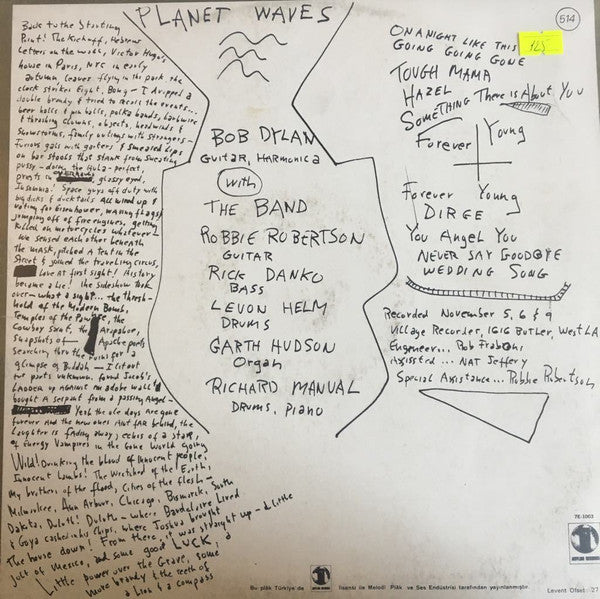 PLANET WAVES
Back to the Starting
Point! The Kickoff, Hebrew
Letters on the wall, Victor Hugo's
house in Paris, NYC in early
autumn leaves flying in the park, the
clock strikes Eight, Bong — I dropped a
double brandy & tried to recall the events...
beer halls & pin balls, polka bands, barbwire
& thrashing clowns, objects, headwinds &
Snowstorms, family outings with strangers —
Furious gals with garters & smeared lips
on bar stools that stank from sweating
pussy — doing the Hula — perfect,
priests in overhauls, glassy eyed,
Insomnia! Space guys off duty with
big dicks & ducktails All wired up &
voting for Eisenhower, waving flags &
jumping off of fire engines, getting
killed on motorcycles whatever —
We sensed each other beneath
the mask, pitched a tent in the
Street & joined the traveling circus,
love at first sight! History
became a lie! the sideshow took
over — what a sight... the thresh-
hold of the Modern Bomb,
Temples of the Pawnee, the
Cowboy Saint, the Arapahoe,
Snapshots of Apache poets
Searching thru the ruins for a
glimpse of Buddah — I lit out
for parts unknown, found Jacob's
Ladder up against an adobe wall &
bought a serpent from a passing Angel —
Yeah the ole days are gone
forever And the new ones Aint far behind, the
Laughter is fading away, echos of a star,
of Energy Vampires in the Gone World going
Wild! Drinking the blood of innocent people,
Innocent Lambs! The Wretched of the Earth,
My brothers of the flood, Cities of the flesh —
Milwaukee, Ann Arbor, Chicago, Bismarck, South
Dakota, Duluth! Duluth — where Baudelaire Lived
& Goya cashed in his Chips, where Joshua brought
The house down! From there, it was straight up — a little
jolt of Mexico, and some good LUCK, a
Little power over the Grave, some
more brandy & the teeth of
a Lion & a compass
BOB DYLAN
Guitar, Harmonica
With
THE BAND
ROBBIE ROBERTSON
GUITAR
RICK DANKO
BASS
LEVON HELM
DRUMS
GARTH HUDSON
Organ
RICHARD MANUAL
DRUMS, PIANO
514
ON A NIGHT LIKE THIS
125
GOING GOING GONE
TOUGH MAMA
HAZEL
SOMETHING There is About You
Forever Young
Forever Young
DIRGE
You Angel You
NEVER SAY GOODBYE
WEDDING SONG
Recorded November 5, 6 & 9
Village Recorder, 1616 Butler, West LA
Engineer... Rob Fraboni
Assisted... NAT Jeffery
Special Assistance... Robbie Robertson
7E-1003
ASYLUM RECORDS
Bu plâk Türkiye'de lisansı ile Melodi Plâk ve Ses Endüstrisi tarafından yayınlanmıştır.
Levent Ofset: 27